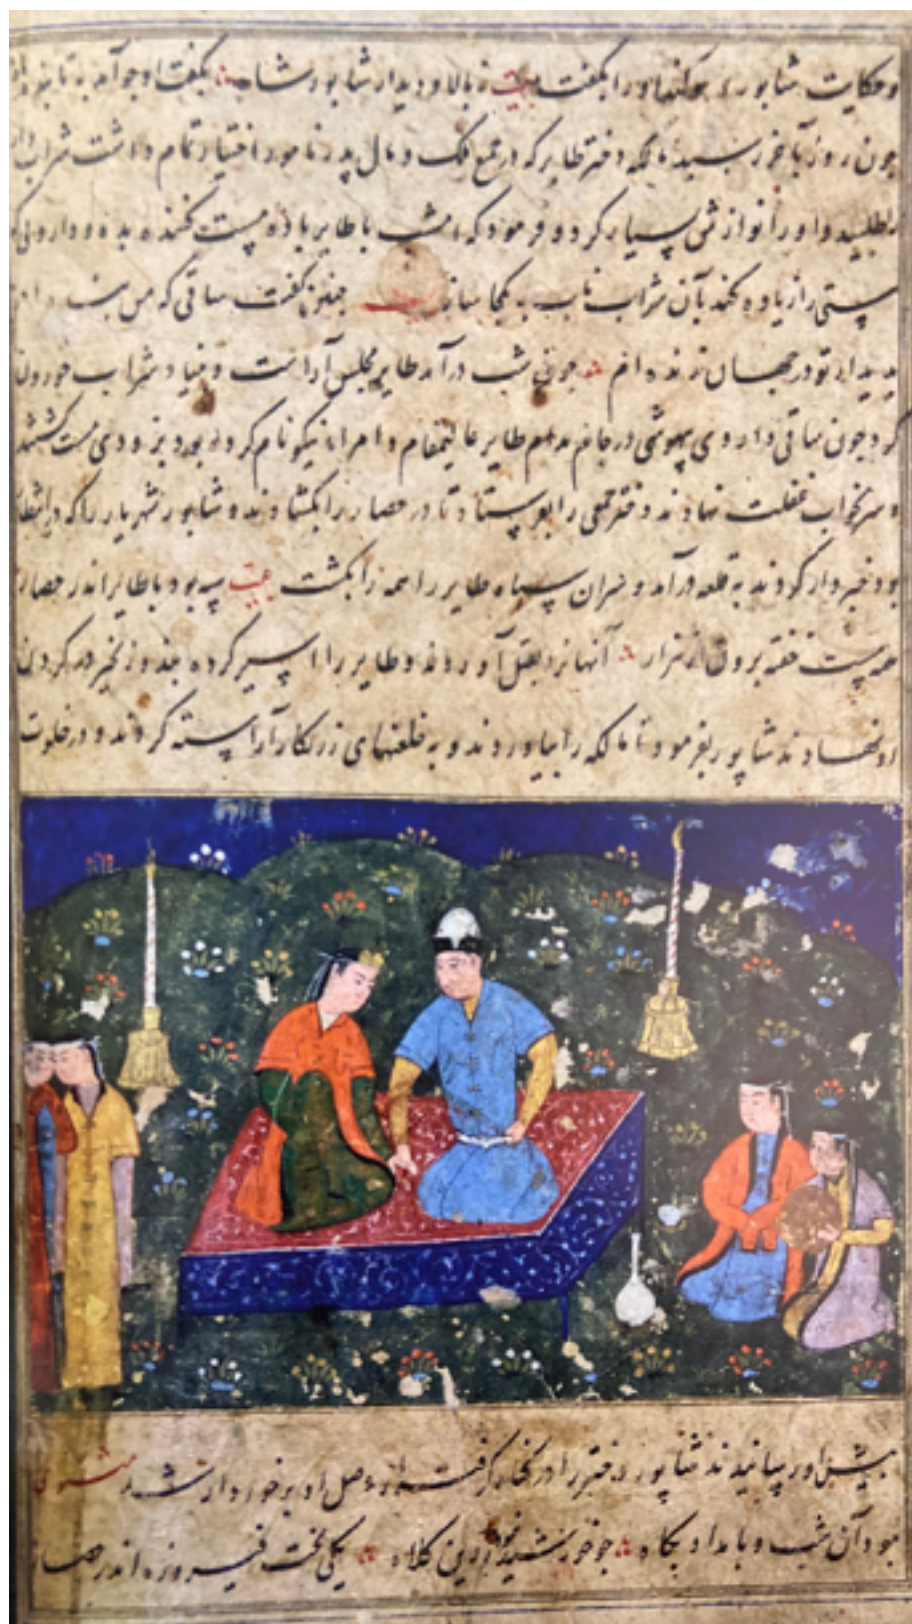 و حکایت شابور بگفت بیت ز بالا و دیدار شابور شاه بگفت او جو آمد به تابنده ماه
جون روز بآخر رسید مالکه دختر طایر که در جمع ملک و مال پدر نامور اختیار تمام داشت شراب دار
را طلبید و او را نوازش بسیار کرد و فرمود که امشب با طایر باده مست کننده بده و داروی که
مستی را زیاده کند بآن شراب ناب به یکجا ساز بیت جنین گفت ساقی که من بنده ام
بدیدار تو در جهان زنده ام جون شب درآمد طایر مجلس آراست و بنیاد شراب خوردن
کرد جون ساقی داروی بیهوشی در جام مدام طایر عالیمقام و امرای نیکو نام کرده بود بزودی مست گشتند
و سر بخواب غفلت نهادند دختر کسی را بفرستاد تا در حصار را بکشادند و شابور شهریار را که در انتظار
بود خبردار کردند به قلعه درآمد و سران سپاه طایر را همه را بکشت بیت سپه بود با طایر اندر حصار
همه مست خفته برون از هزار آنها را بقتل آوردند و طایر را اسیر کرده بند و زنجیر در گردن
او نهادند شابور بفرمود تا مالکه را بیاوردند و به خلعتهای زرنکار آراسته کردند و در خلوت
پیش او رسانیدند شابور دختر را در کنار گرفت و از وصل او برخوردار شد مثنوی
بود آن شب و بامداد بکاه جو خورشید بنمود زرین کلاه یکی تخت فیروزه اندر حصار